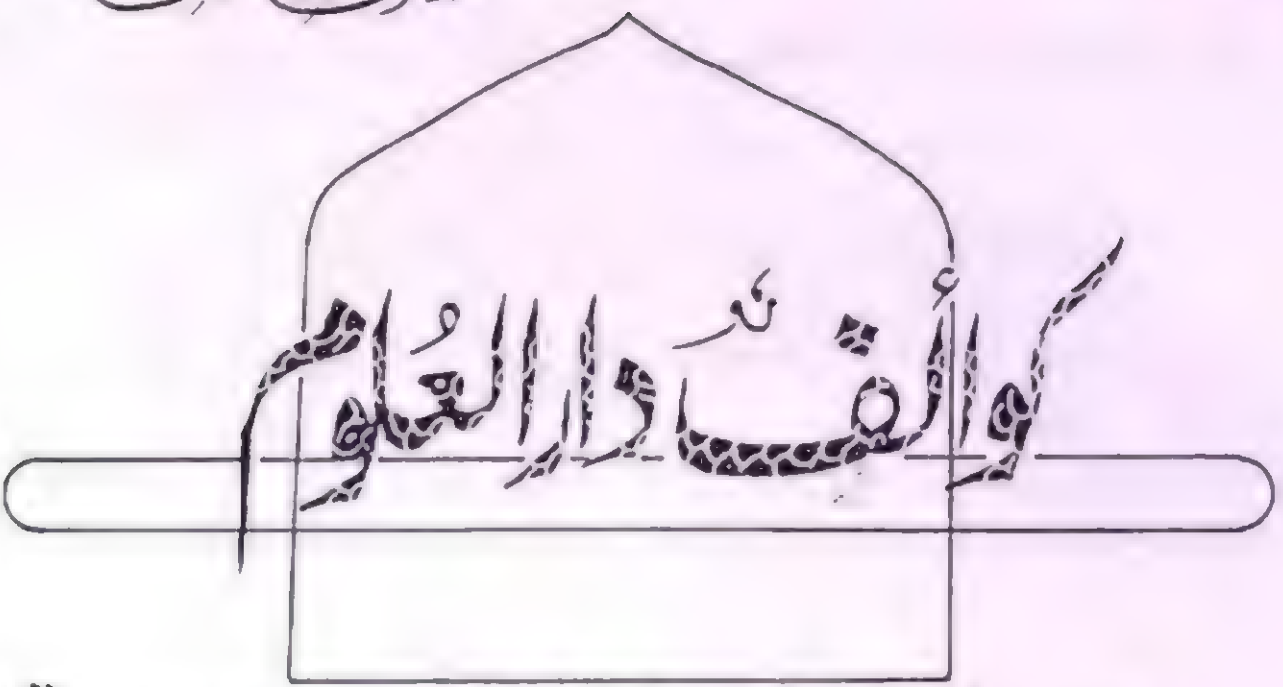 کوائف دار العُلوم